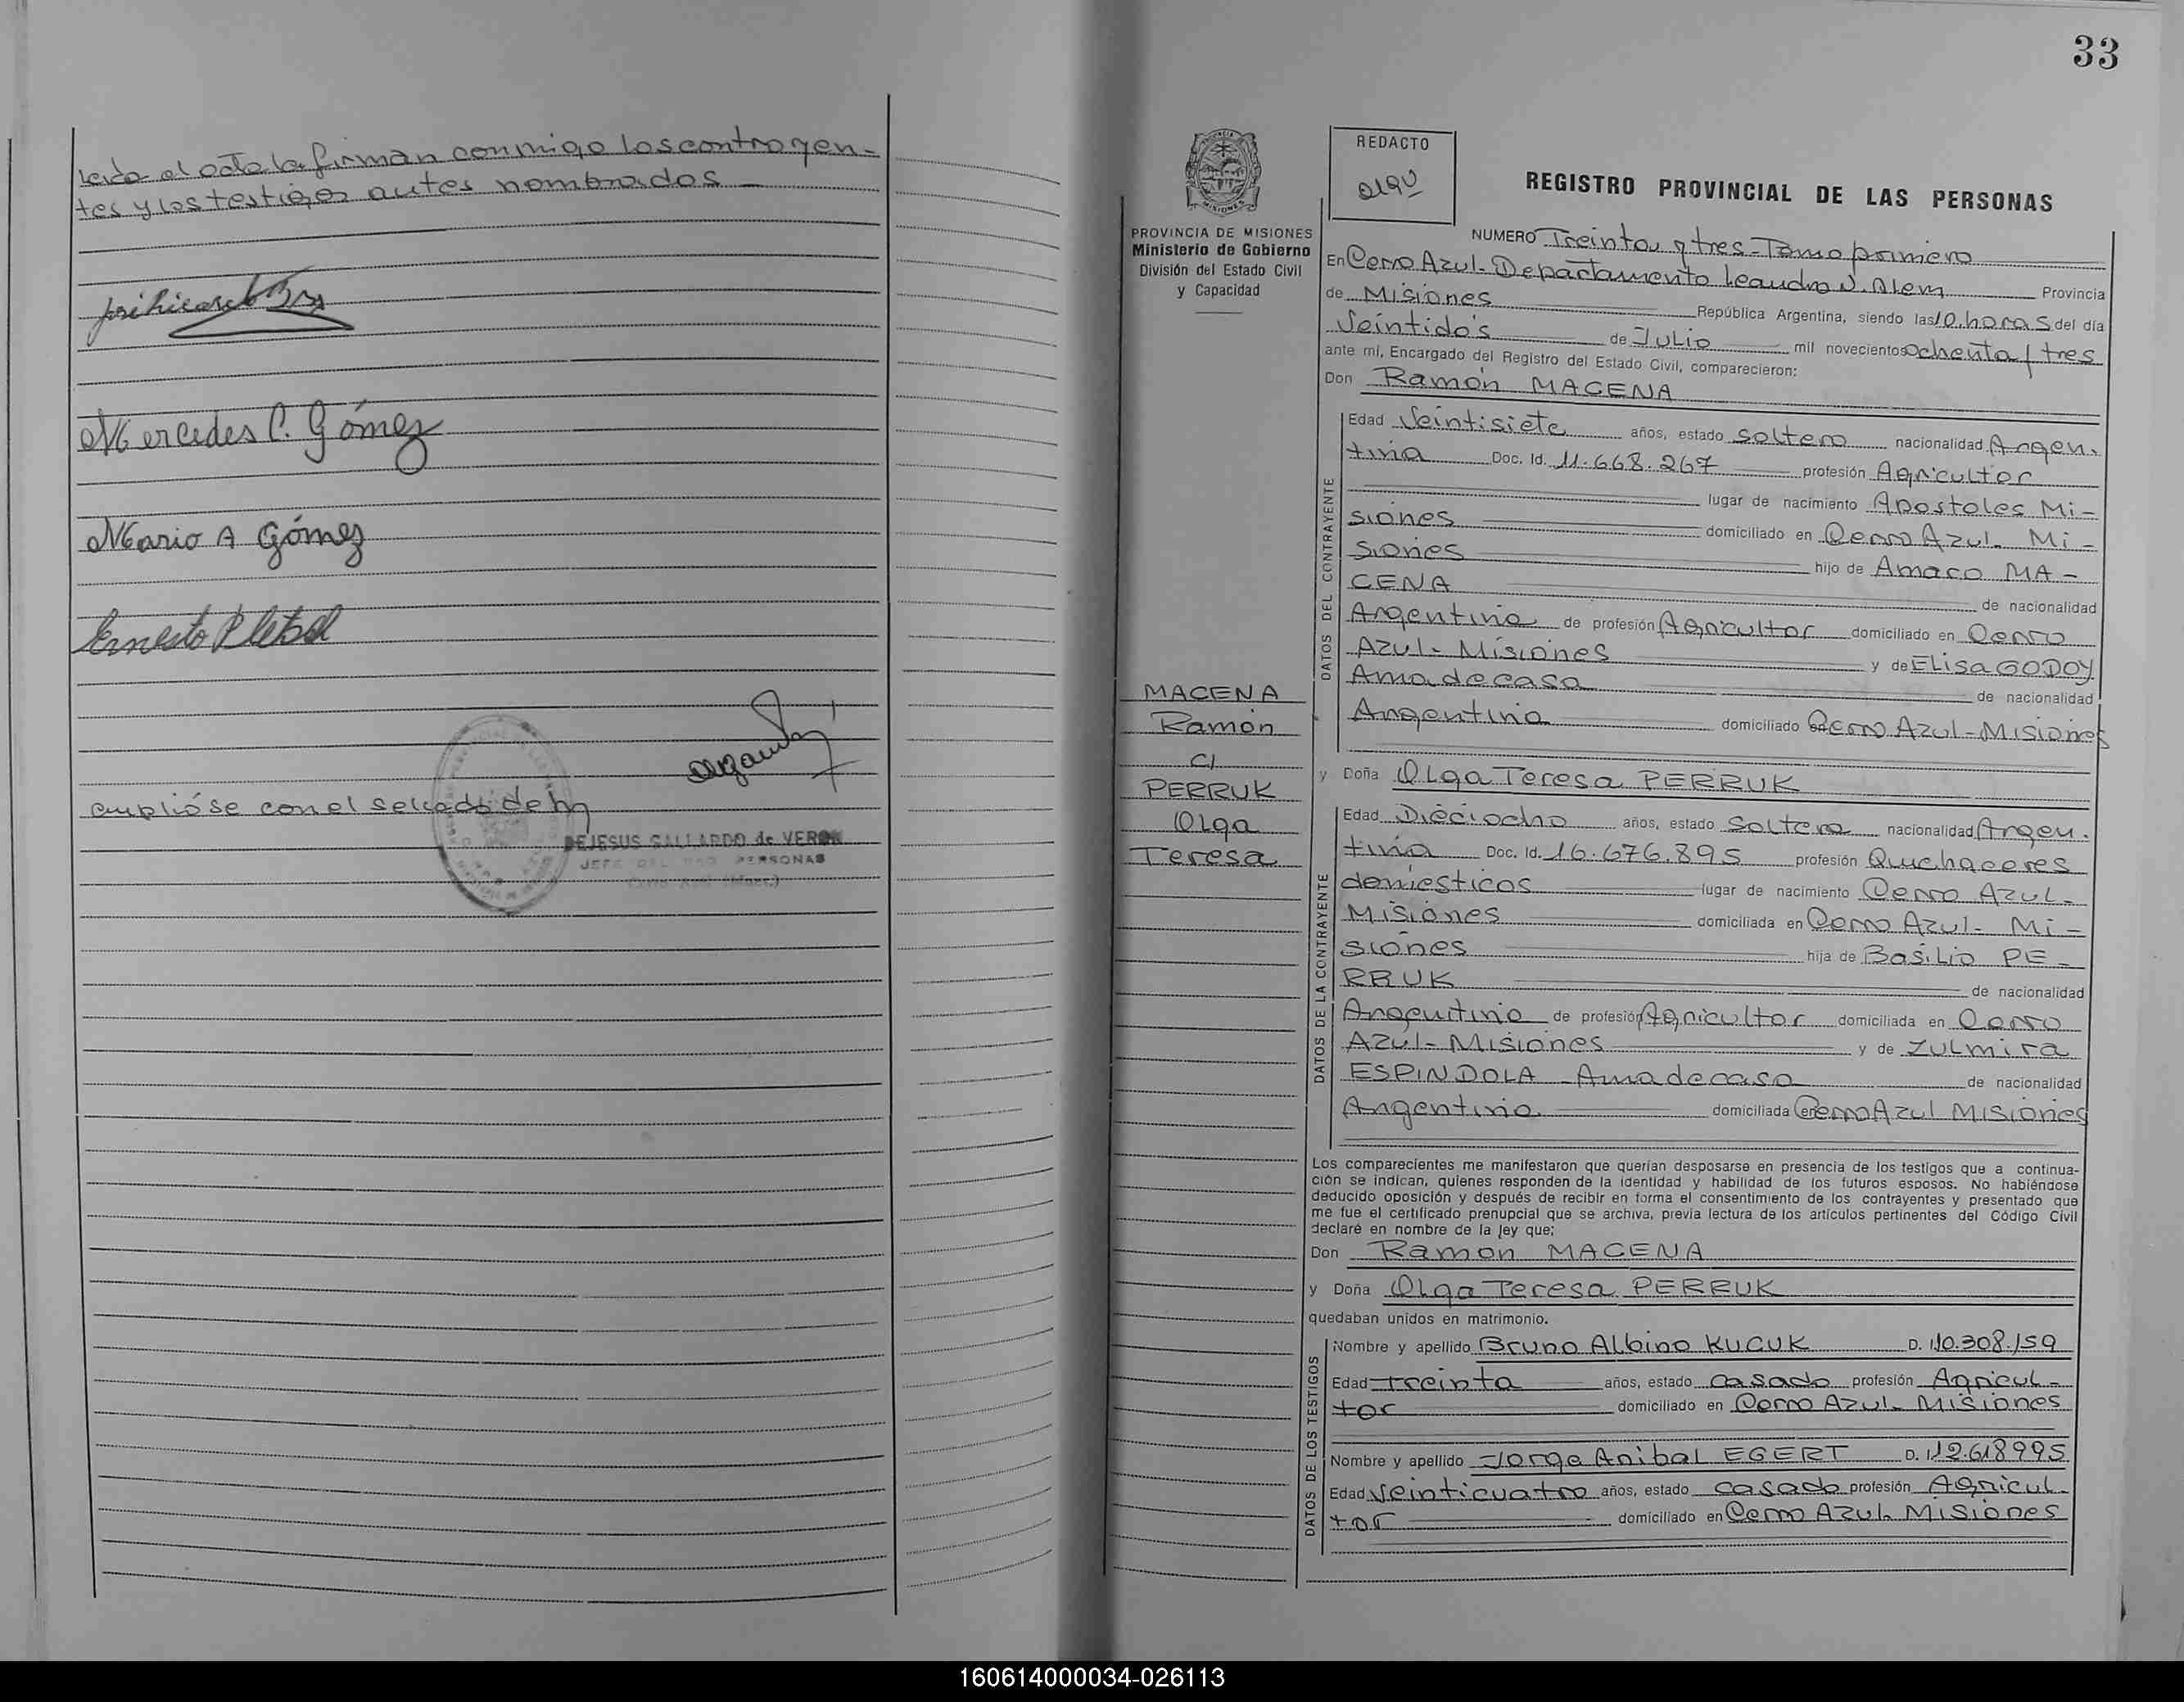 leida el acta la firman conmigo los contrayen-
tes y los testigos antes nombrados
Mercedes C. Gómez
Mario A Gómez
Ernesto Pletsch
cumplióse con el sellado de ley
DEJESUS GALLARDO de VERON
33
PROVINCIA DE MISIONES
Ministerio de Gobierno
División del Estado Civil
y Capacidad
MACENA
Ramón
C/
PERRUK
Olga
Teresa
REDACTO
REGISTRO PROVINCIAL DE LAS PERSONAS
NUMERO Treinta y tres - Tomo primero
En Cerro Azul - Departamento Leandro N. Alem Provincia
de Misiones República Argentina, siendo las 10 horas del día
Veintidós de Julio mil novecientos ochenta y tres
ante mí, Encargado del Registro del Estado Civil, comparecieron:
Don Ramón MACENA
DATOS DEL CONTRAYENTE
Edad Veintisiete años, estado soltero nacionalidad Argen-
tina Doc. Id. 11.668.267 profesión Agricultor
lugar de nacimiento Apostoles Mi-
siones domiciliado en Cerro Azul - Mi-
siones hijo de Amaro MA-
CENA de nacionalidad
Argentina de profesión Agricultor domiciliado en Cerro
Azul - Misiones y de Elisa GODOY
Ama de casa de nacionalidad
Argentina domiciliado en Cerro Azul - Misiones
y Doña Olga Teresa PERRUK
DATOS DE LA CONTRAYENTE
Edad Dieciocho años, estado Soltera nacionalidad Argen-
tina Doc. Id. 16.676.895 profesión Quehaceres
domésticos lugar de nacimiento Cerro Azul -
Misiones domiciliada en Cerro Azul - Mi-
siones hija de Basilio PE-
RRUK de nacionalidad
Argentino de profesión Agricultor domiciliada en Cerro
Azul - Misiones y de Zulmira
ESPINDOLA - Ama de casa de nacionalidad
Argentina domiciliada en Cerro Azul Misiones
Los comparecientes me manifestaron que querían desposarse en presencia de los testigos que a continua-
ción se indican, quienes responden de la identidad y habilidad de los futuros esposos. No habiéndose
deducido oposición y después de recibir en forma el consentimiento de los contrayentes y presentado que
me fue el certificado prenupcial que se archiva, previa lectura de los artículos pertinentes del Código Civil
declaré en nombre de la ley que:
Don Ramon MACENA
y Doña Olga Teresa PERRUK
quedaban unidos en matrimonio.
DATOS DE LOS TESTIGOS
Nombre y apellido Bruno Albino KUCUK D. I. 10.308.159
Edad Treinta años, estado casado profesión Agricul-
tor domiciliado en Cerro Azul - Misiones
Nombre y apellido Jorge Anibal EGERT D. I. 12.618995
Edad Veinticuatro años, estado casado profesión Agricul-
tor domiciliado en Cerro Azul - Misiones
160614000034-026113